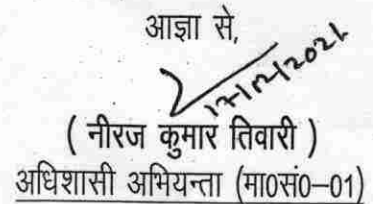 आज्ञा से,
17/12/2021
( नीरज कुमार तिवारी )
अधिशासी अभियन्ता (मा0सं0–01)